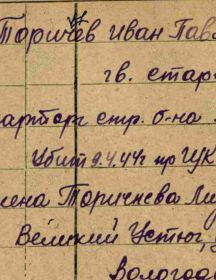 Торичнев Иван Пав
гв. стар
парторг стр. б-на
Убит 9.4.44г пр ГУК
жена Торичнева Ли
Великий Устюг,
Вологод